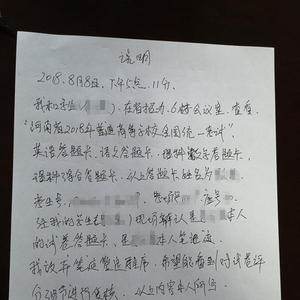 说明
2018.8月8日.下午5点.11分.
我和学生( )在省招办.6楼会议室.查看.
"河南省2018年普通高等学校全国统一考试".
英语答题卡、语文答题卡、理科数学答题卡、
理科综合答题卡.以上答题卡姓名为
考生号 座号
经我的学生 现场辨认是 本人
的试卷答题卡,是 本人笔迹.
我放弃笔迹鉴定程序.希望能看到对试卷评
分细节进行复核.以上内容本人同意